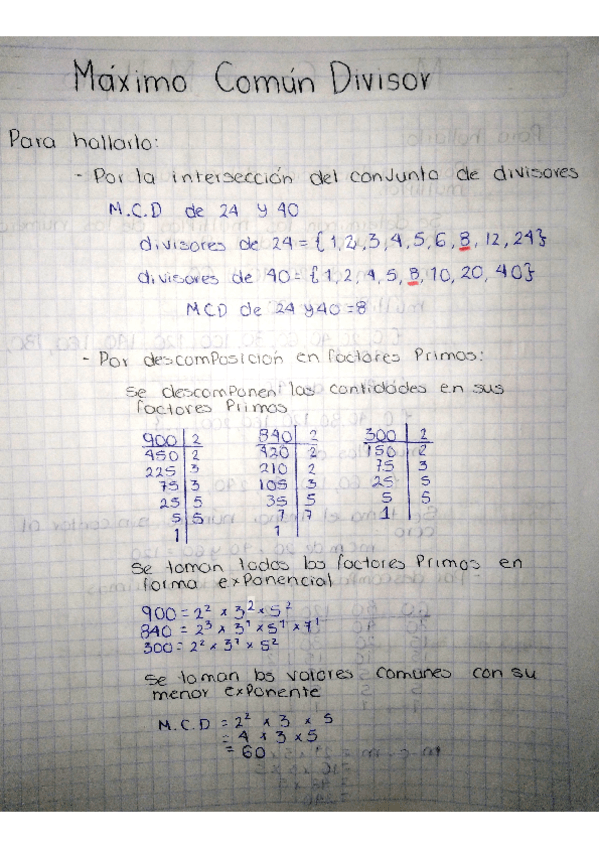 Máximo Común Divisor
Para hallarlo:
- Por la intersección del conjunto de divisores
M.C.D de 24 y 40
divisores de 24 = {1,2,3,4,5,6,8,12,24}
divisores de 40 = {1,2,4,5,8,10,20,40}
MCD de 24 y 40 = 8
- Por descomposición en factores Primos:
Se descomponen las cantidades en sus
factores Primos
900 | 2 840 | 2 300 | 2
450 | 2 420 | 2 150 | 2
225 | 3 210 | 2 75 | 3
75 | 3 105 | 3 25 | 5
25 | 5 35 | 5 5 | 5
5 | 5 7 | 7 1 |
1 | 1 |
Se toman todos los factores Primos en
forma exponencial
900 = 2² x 3² x 5²
840 = 2³ x 3¹ x 5¹ x 7¹
300 = 2² x 3¹ x 5²
Se toman los valores comunes con su
menor exponente
M.C.D = 2² x 3 x 5
= 4 x 3 x 5
= 60